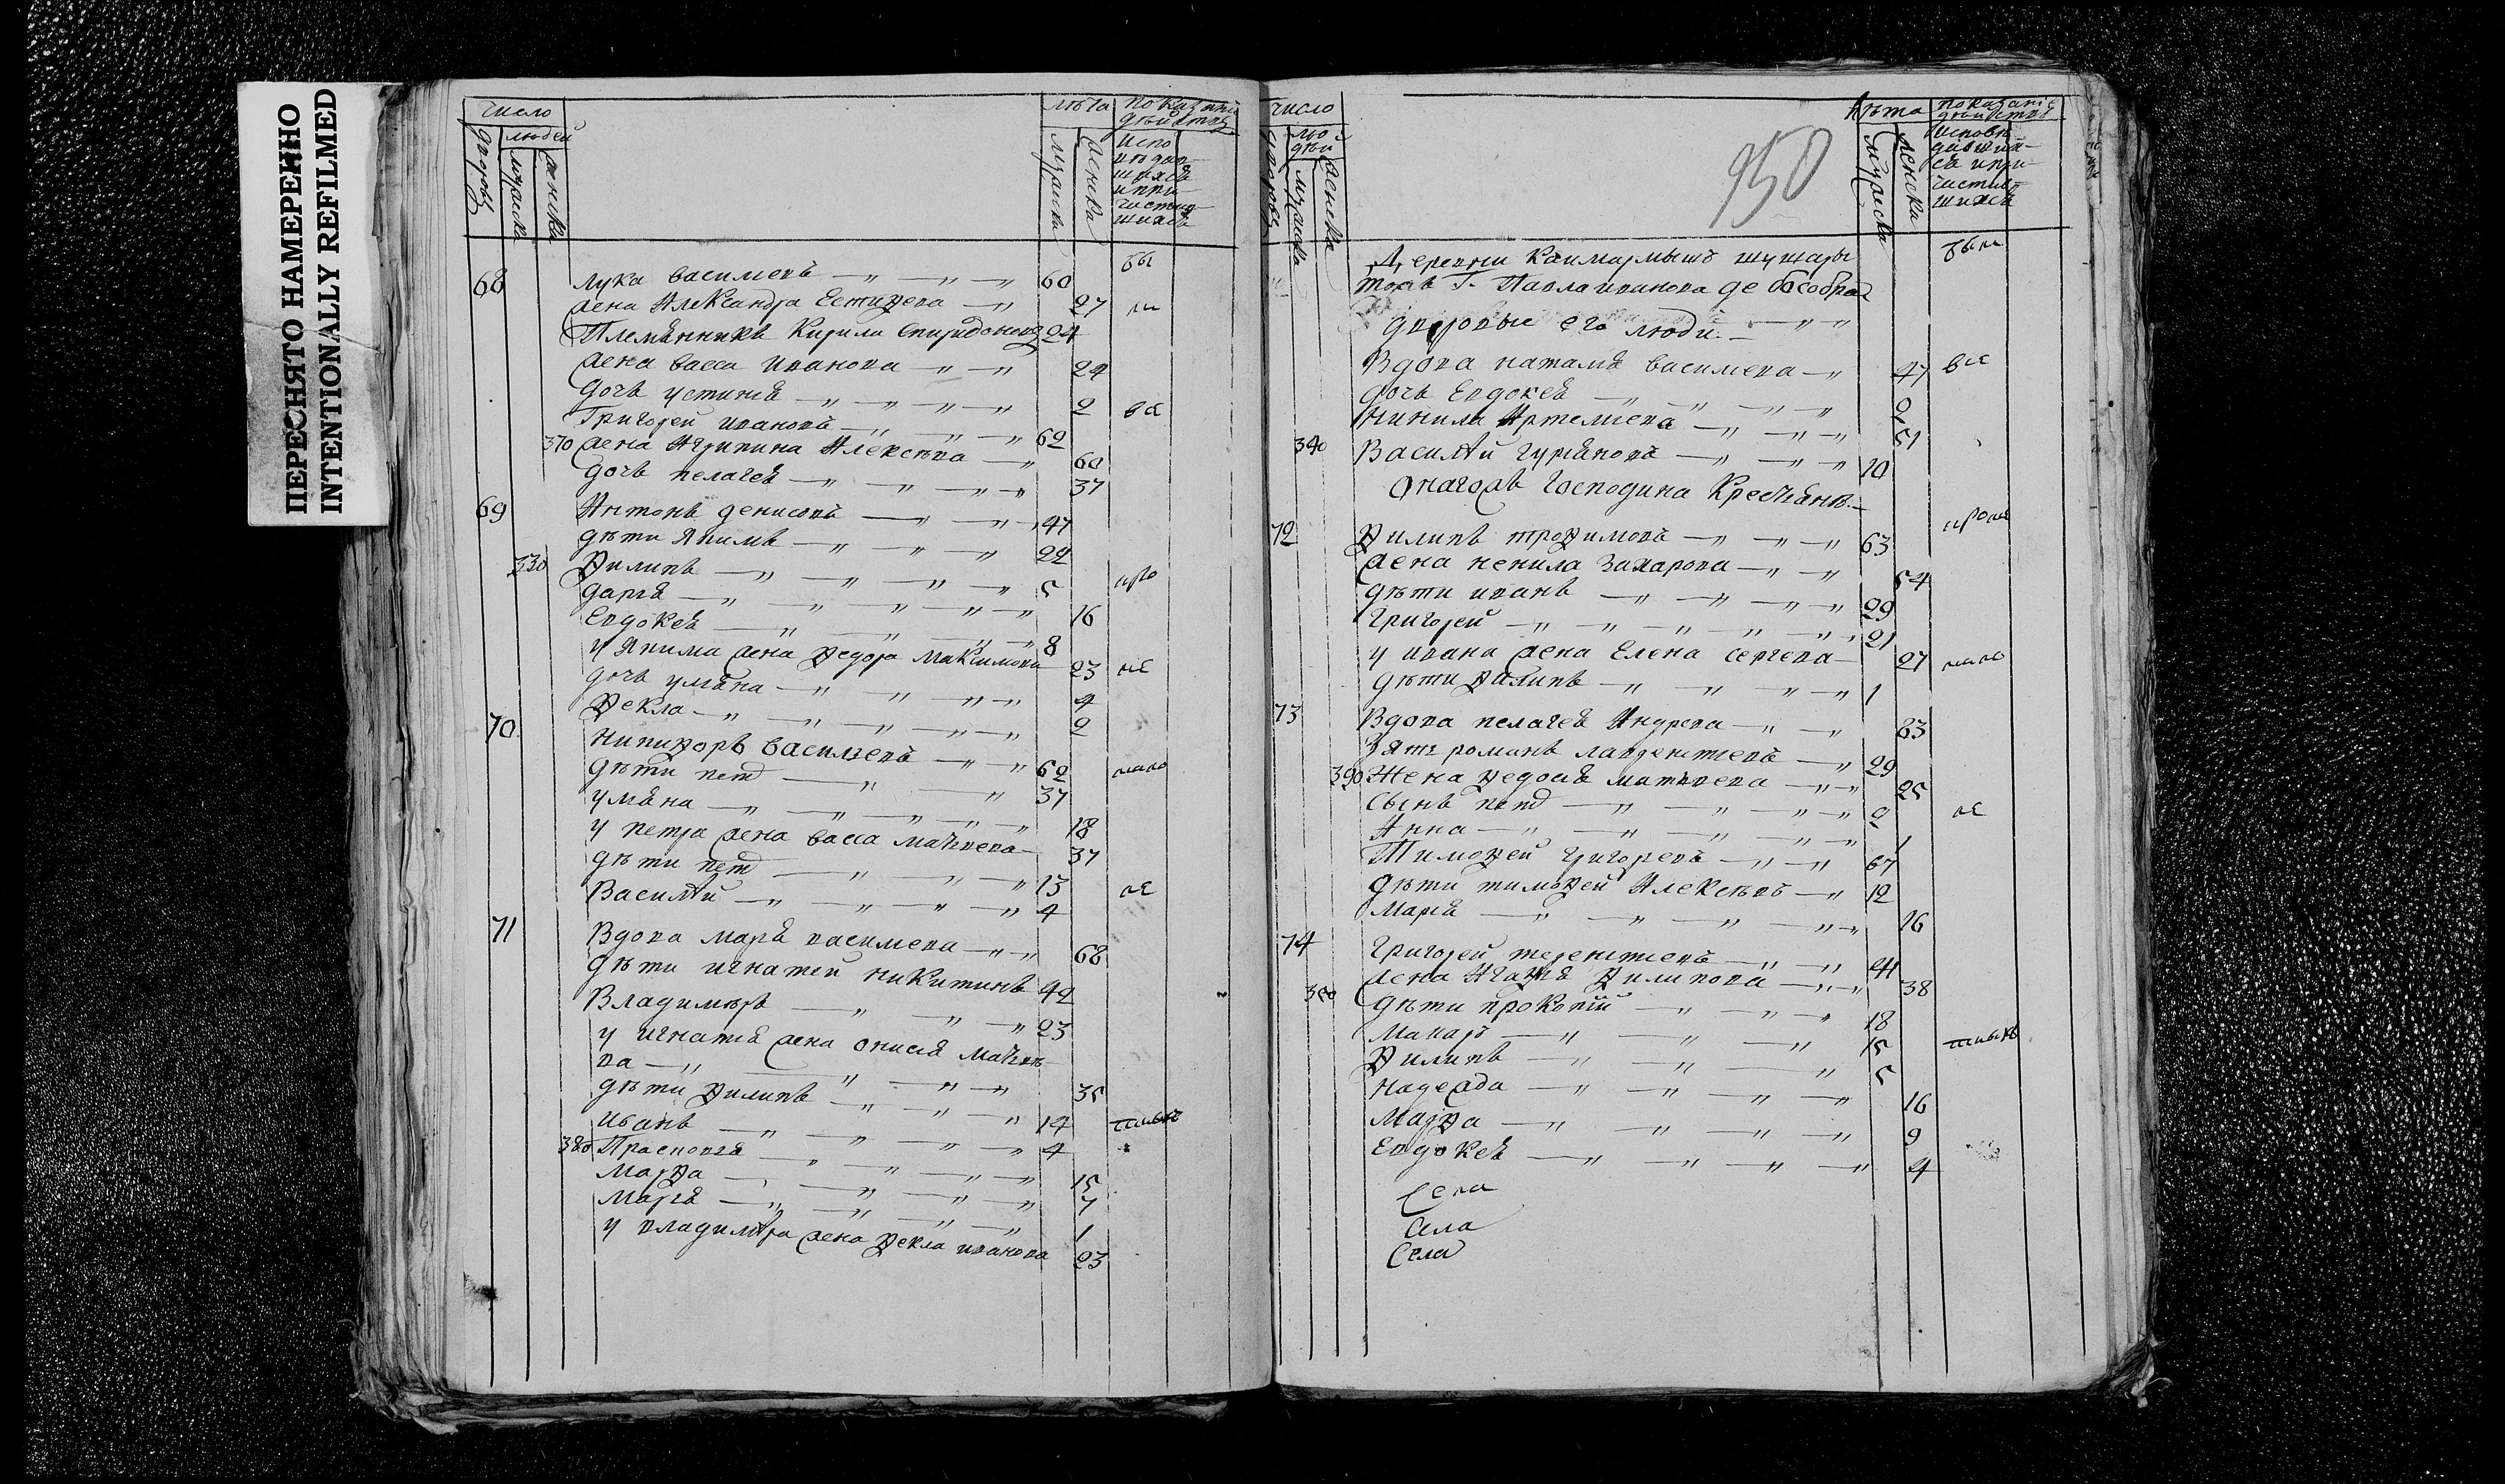 ПЕРЕСНЯТО НАМЕРЕННО
INTENTIONALLY REFILMED
число
людей
дворовъ
мужеска
женска
лѣта
мужеска
женска
показаніе
дѣйства
испо
вѣдав
шихся
и при
частив
шихся
68 Лука васильевъ 60 бы
жена Александра Естифеева 27 ли
Племянникъ Кирила Спиридоновъ 24
жена васса иванова 24
дочь устинья 2 в се
Григорей ивановъ 62
370 жена Агрипина Алексѣева 60
дочь пелагея 37
69 Антонъ денисовъ 47
дѣти Якимъ 22
330 Филипъ 5 про
дарья 16
Евдокея 8
у Якима жена Федора Максимова 23 же
дочь ульяна 4
Фекла 2
70 никифоръ васильевъ 62 мано
дѣти петръ 37
ульяна 18
у петра жена васса матвеева 37
дѣти петръ 13
Василѣй 4 же
71 Вдова марья васильева 68
дѣти игнатей никитинъ 42
Владимѣръ 23
у игнатья жена онисья матвѣ
ва 35
дѣти Филипъ 14
иванъ 4
380 Прасковья 15
марфа 7
марья 1
у владимѣра жена Фекла иванова 23
число
лю
дей
дворовъ
мужеска
женска
950
лѣта
мужеска
женска
показаніе
дѣйства
исповѣ
давших
ся и при
частив
шихся
Деревни Каймармышъ шушары были
тожъ Г. Павла иванова де бособра
дворовые его люди
Вдова наталья васильева 47 все
дочь Евдокея
нинила Артемьева 51
340 Василѣй гурьяновъ 20
Онагожъ Господина Крестьянъ
72 Филипъ трофимовъ 63 проме
жена ненила Захарова 54
дѣти иванъ 29
григорей 21
у ивана жена Елена сергеева 27 мано
дѣти Филипъ 1
73 Вдова пелагея Андреева 63
Зять романъ лаврентьевъ 29
390 Жена Федосья матвеева 25
Сынъ петръ 2 же
Анна 1
Тимофей григорьевъ 67
дѣти тимофей Алексѣевъ 12
Марья 16
74 Григорей терентьевъ 41
жена Агафья Филипова 38
350 дѣти прокопій 18
макаръ 15
Филипъ 5
надежда 16
Марфа 9
Евдокея 4
Села
Села
Села